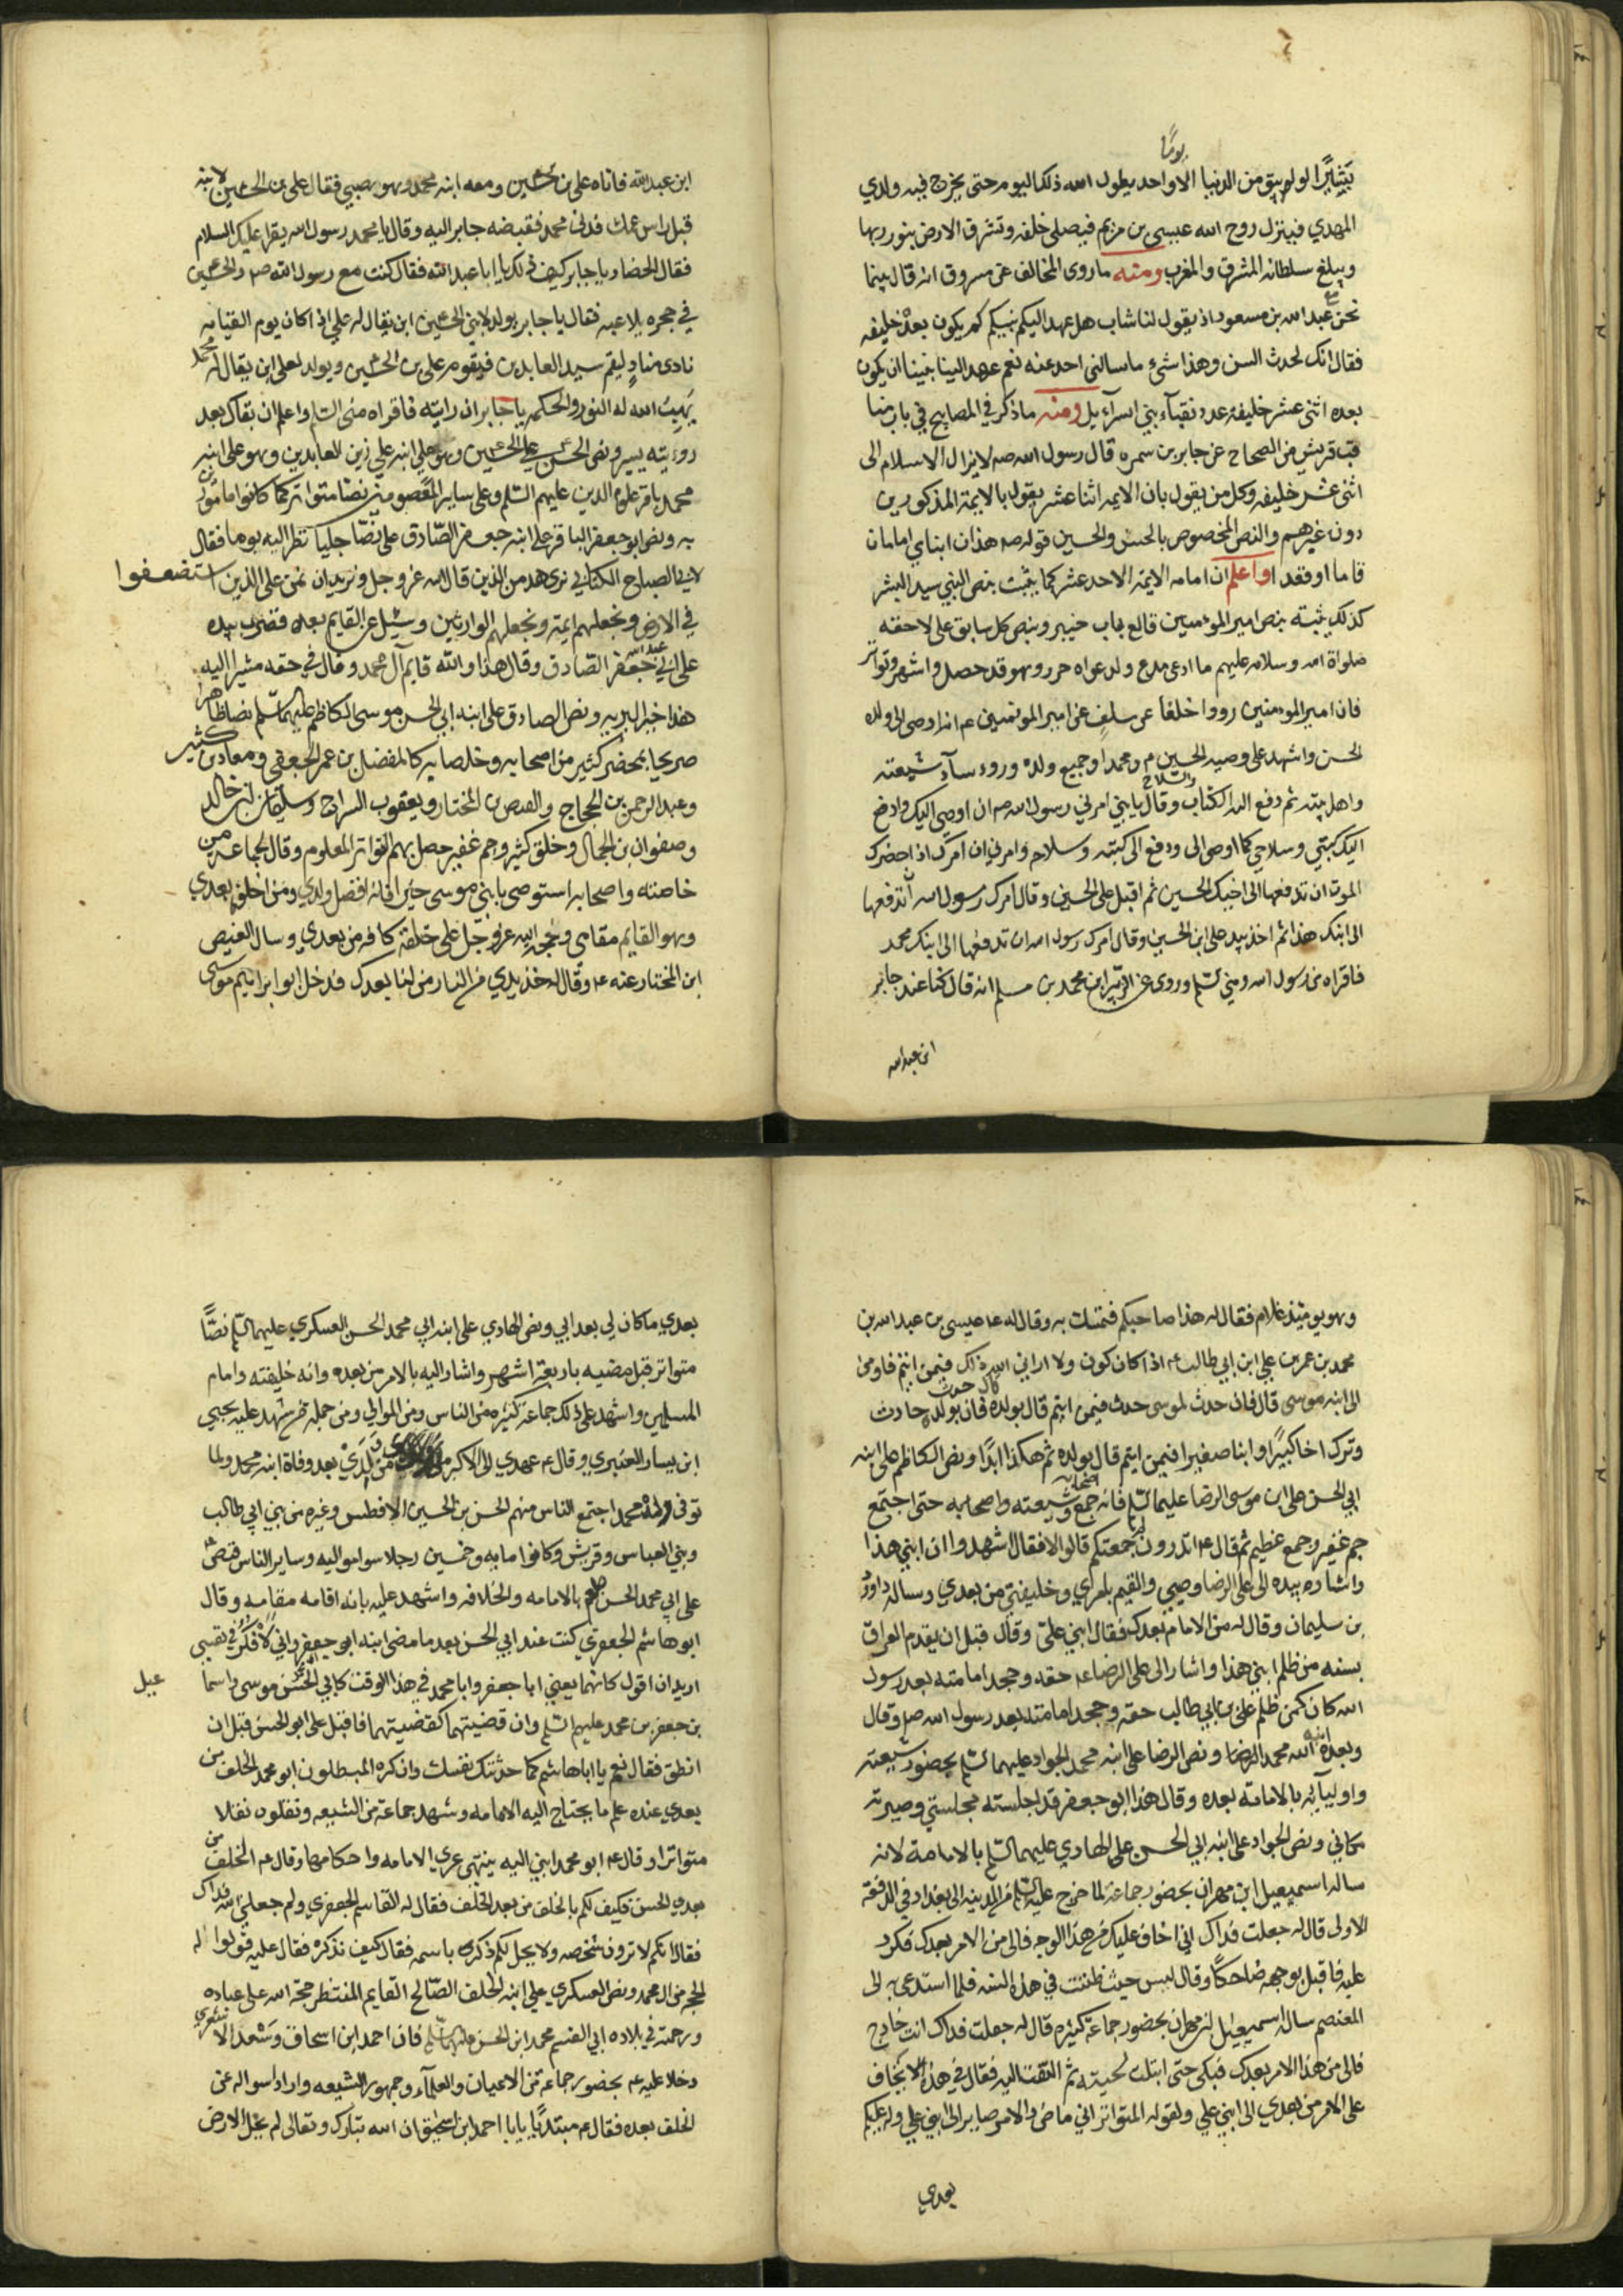 يومًا
لو لم يبق من الدنيا الا واحد يطول الله ذلك اليوم حتى يخرج فيه ولدي
المهدي فينزل روح الله عيسى بن مريم فيصلي خلفه وتشرق الارض بنور ربها
ويبلغ سلطانه المشرق والمغرب ومنه ما روى المخالف عن مسروق انه قال بينما
نحن عند عبد الله بن مسعود اذ يقول لنا شاب هل عهد اليكم نبيكم كم يكون بعده خليفه
فقال انك لحدث السن وهذا شيء ما سالني احد عنه نعم عهد الينا نبينا ان يكون
بعده اثنى عشر خليفه عدد نقباء بني اسرآءيل ومنه ما ذكر في المصابيح في باب مناقب
قريش من الصحاح عن جابر بن سمره قال رسول الله صه لا يزال الاسلام الى
اثنى عشر خليفه وكل من يقول بان الايمه اثنا عشر يقول بالايمة المذكورين
دون غيرهم والنص المخصوص بالحسن والحسين قوله صه هذان ابناي امامان
قاما او قعدا واعلم ان امامه الايمه الاحد عشر كما يثبت بنص النبي سيد البشر
كذلك يثبته بنص امير المومنين قالع باب خيبر وبنص كل سابق على لاحقه
صلواة الله وسلامه عليهم ما ادعى مدع ولدعواه حرر وهو قد حصل واشهر وتواتر
فان امير المومنين رووا خلفا عن سلف عن امير المومنين عم انه اوصى الى ولده
الحسن واشهد على وصيه الحسين م ومحمدا وجميع ولده وروء سآء شيعته
واهل بيته ثم دفع اليه الكتاب والسلاح وقال يا بني امرني رسول الله صه ان اوصي اليك وادفع
اليك كتبي وسلاحي كما اوصى الى ودفع الى كتبه وسلاحه وامرني ان آمرك اذا حضرك
الموت ان تدفعها الى اخيك الحسين ثم اقبل على الحسين وقال امرك رسول الله ان تدفعها
الى ابنك هذا ثم اخذ بيد على ابن الحسين وقال امرك رسول الله ان تدفعها الى ابنك محمد
فاقراه من رسول الله ومني السلم وروى عن الزبير ابن محمد بن مسلم انه قال كنا عند جابر
ابن عبد الله
ابن عبد الله فاتاه على بن الحسين ومعه ابنه محمد وهو صبي فقال على بن الحسين لابنه
قبل راس عمك فدنى محمد فقبضه جابر اليه وقال يا محمد رسول الله يقرا عليك السلام
فقال الحضار يا جابر كيف ذلك يا ابا عبد الله فقال كنت مع رسول الله صه والحسين
في حجره يلاعبه فقال يا جابر يولد لابني الحسين ابن يقال له علي اذا كان يوم القيامه
نادى منادٍ ليقم سيد العابدين فيقوم على بن الحسين ويولد لعلى ابن يقال له محمد
يهب الله له النور والحكمه يا جابر ان رايته فاقراه مني السلم واعلم ان بقاك بعد
روءيته يسير ونص الحسن على الحسين وهو على ابنه علي زين العابدين وهو على ابنه
محمد باقر علوم الدين عليهم السلم وعلى ساير المعصومين نصا متواتر كما كانوا ما مون
به ونص ابو جعفر الباقر على ابنه جعفر الصادق على نصا جليا نظر اليه يوما فقال
لابي الصباح الكناني نرى هذه من الذين قال الله عز وجل ونريد ان نمن على الذين استضعفوا
في الارض ونجعلهم ايمة ونجعلهم الوارثين وسئل عن القايم بعده فضرب بيده
على ابي عبد الله جعفر الصادق وقال هذا والله قايم آل محمد وقال في حقه مشيرا اليه
هذا خير البريه ونص الصادق على ابنه ابي الحسن موسى الكاظم عليهما السلم نصا ظاهرا
صريحا بمحضر كثير من اصحابه وخلصايه كالمفضل بن عمر الجعفي ومعاد بن كثير
وعبد الرحمن بن الحجاج والفيض بن المختار ويعقوب السراج وسليمان بن خالد
وصفوان بن الجمال وخلق كثير وجم غفير حصل بهم التواتر المعلوم وقال لجماعه من
خاصته واصحابه استوصى بابني موسى خيرا فانه افضل ولدي ومن اخلف بعدي
وهو القايم مقامى وحجة الله عز وجل على خلقه كافه من بعدي وسال الفيض
ابن المختار عنه ع وقال له خذ بيدي من النار من لنا بعدك فدخل ابو ابراهيم موسى
وهو يوميذ غلام فقال له هذا صاحبكم فتمسك به وقال له عا عيسى بن عبد الله بن
محمد بن عمر بن علي ابن ابي طالب ع اذا كان كون ولا اراني الله ذلك فبمن ايتم فاومى
الى ابنه موسى قال فان حدث لموسى حدث فبمن ايتم قال بولده فان كان حدث بولده حادث
وترك اخا كبيرًا وابنا صغيرا فبمن ايتم قال بولده ثم هكذا ابدًا ونص الكاظم على ابنه
ابي الحسن على ابن موسى الرضا عليهما السلم فانه جمع وشيعته واصحابه حتى اجتمع
جم غفير وجمع عظيم ثم قال ع اتدرون لما جمعتكم قالوا لا فقال اشهدوا ان ابني هذا
واشاره بيده الى على الرضا وصيي والقيم بامري وخليفتي من بعدي وساله داود
بن سليمان وقال له من الامام بعدك فقال ابني علي وقال قبل ان يقدم العراق
بسنه من ظلم ابني هذا واشار الى على الرضا ع حقه وجحد امامته بعد رسول
الله كان كمن ظلم على بن ابي طالب حقه وجحد امامته بعد رسول الله صه وقال
وبعده ابنه محمد الرضا ونص الرضا على ابنه محمد الجواد عليهما السلم بحضور شيعته
واوليآيه بالامامة بعده وقال هذا ابو جعفر قد اجلسته مجلستي وصيرته
مكاني ونص الجواد على ابنه ابي الحسن على الهادي عليهما السلم بالامامة لانه
ساله اسمعيل ابن مهران بحضور جماعة لما خرج عليه السلم من المدينه الى بغداد في الدفعة
الاولى قال له جعلت فداك اني اخاف عليك من هذا الوجه فالى من الامر بعدك فكرد
عليه فاقبل بوجهه ضاحكًا وقال ليس حيث ظننت في هذه السنه فلما استدعى به الى
المعتصم ساله اسمعيل بن مهران بحضور جماعة كثيره قال له جعلت فداك انت خارج
فالى من هذا الامر بعدك فبكى حتى ابتلت لحيته ثم التفت اليه فقال في هذه الا يخاف
على الامر من بعدي الى ابني علي ولقوله المتواتر اني ماض والامر صاير الى ابني علي وله عليكم
بعدي
بعدي ما كان لي بعد ابي ونص الهادي على ابنه ابي محمد الحسن العسكري عليهما السلم نصًّا
متواتر قبل مضيه باربعة اشهر واشار اليه بالامر من بعده وانه خليفته وامام
المسلمين واشهد على ذلك جماعة كثيره من الناس ومن الموالي ومن جمله من شهد عليه يحيى
ابن يسار العنبري وقال ع عهدي الى الاكبر من ولدي بعد وفاة ابنه محمد ولما
توفى ولده محمد اجتمع الناس منهم الحسن بن الحسين الافطس وغيره من بني ابي طالب
وبني العباس وقريش وكانوا مايه وخمسين رجلا سوا مواليه وساير الناس فنص
على ابي محمد الحسن بالامامه والخلافه واشهد عليه بانه اقامه مقامه وقال
ابو هاشم الجعفري كنت عند ابي الحسن بعد ما مضى ابنه ابو جعفر واني لافكر في نفسي
اريد ان اقول كانهما يعني ابا جعفر وابا محمد في هذا الوقت كابي الحسن موسى واسما
عيل
بن جعفر بن محمد عليهم السلم وان قضيتهما كقضيتهما فاقبل على ابو الحسن قبل ان
انطق فقال نعم يا ابا هاشم كما حدثتك نفسك وان كره المبطلون ابو محمد الخلف من
بعدي عنده علم ما يحتاج اليه الامامه وشهد جماعة من الشيعه ونقلون نقلا
متواترا وقال ع ابو محمد ابني اليه ينتهى عري الامامه واحكامها وقال ع الخلف من
بعدي الحسن فكيف لكم بالخلف من بعد الخلف فقال له القاسم الجعفري ولم جعلني الله فداك
فقال انكم لا ترون شخصه ولا يحل لكم ذكره باسمه فقال كيف نذكره فقال عليه قولوا له
الحجة من ال محمد ونص العسكري علي ابنه الخلف الصالح القايم المنتظر حجة الله على عباده
ورحمته في بلاده ابي القسم محمد ابن الحسن عليهما السلم فان احمد ابن اسحاق وسعد الاشعري
دخلا عليه ع بحضور جماعة من الاعيان والعلمآء وجمهور الشيعه واراد اسواله عن
الخلف بعده فقال ع مبتديًا يا با احمد ابن اسحق ان الله تبارك وتعالى لم يخل الارض